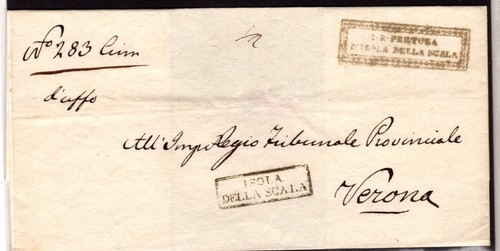 N.º 283 Crim
d'uffo
I·R·PRETURA
D'ISOLA DELLA SCALA
All'Imp. Regio Tribunale Provinciale
ISOLA
DELLA SCALA
Verona